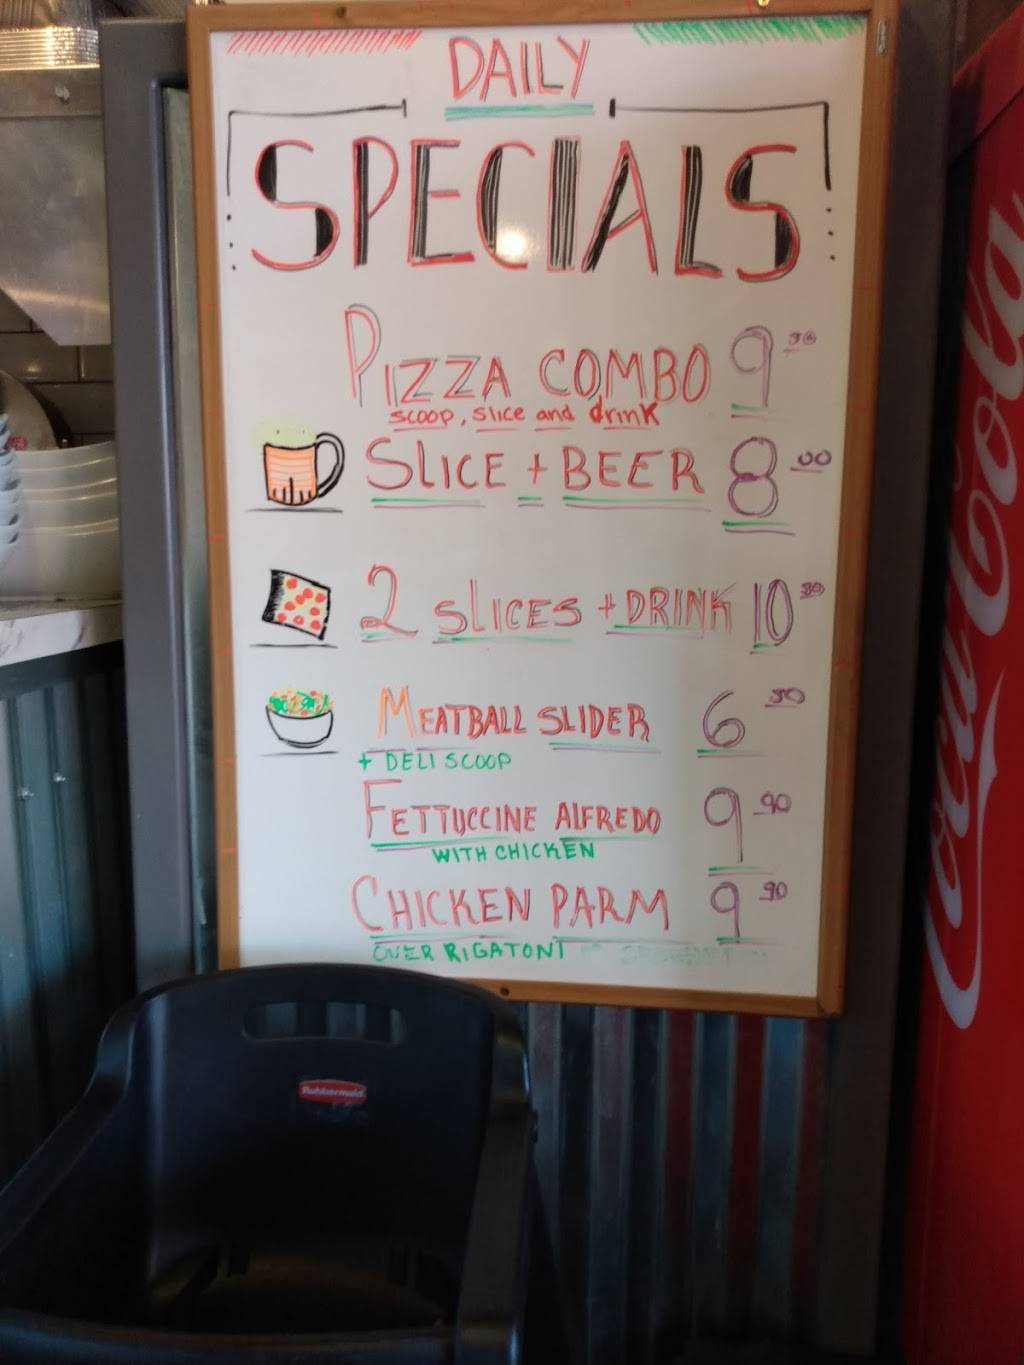 DAILY
SPECIALS
PIZZA COMBO 9 50
scoop, slice and drink
SLICE + BEER 8 00
2 SLICES + DRINK 10 50
MEATBALL SLIDER 6 50
+ DELI SCOOP
FETTUCCINE ALFREDO 9 90
WITH CHICKEN
CHICKEN PARM 9 90
OVER RIGATONI
Rubbermaid
Coca-Cola